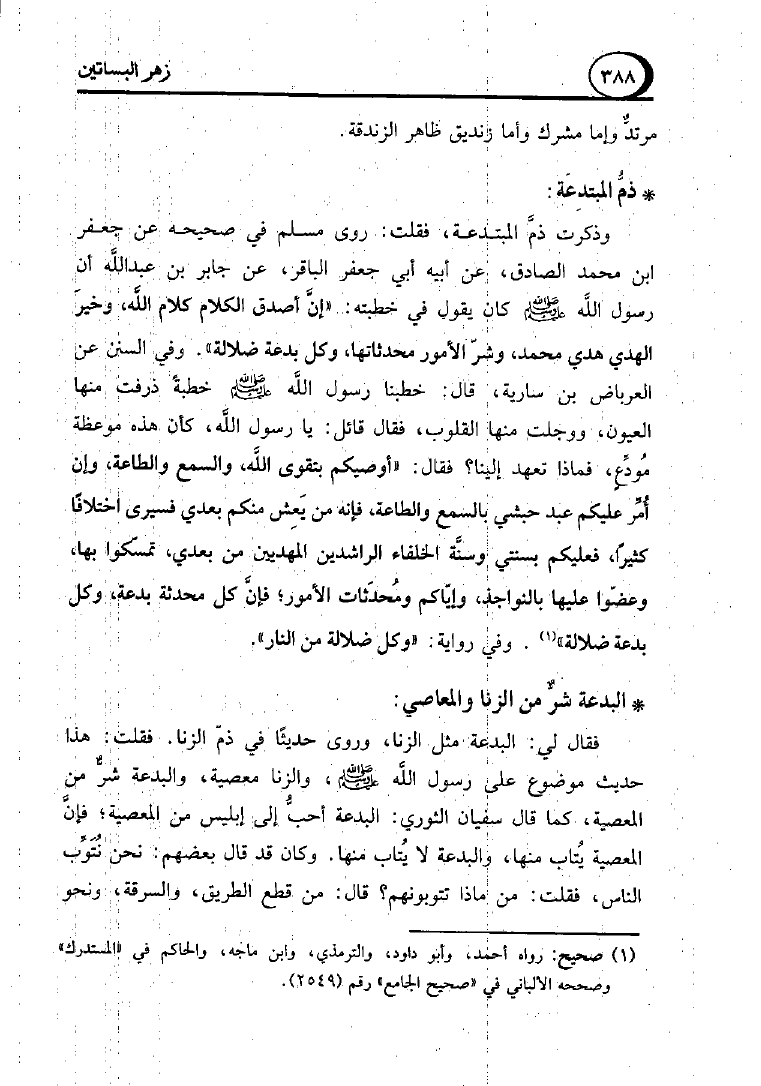 ٣٨٨
زهر البساتين
مرتدٌّ وإما مشرك وأما زنديق ظاهر الزندقة.
* ذمُّ المبتدعَة:
وذكرت ذمَّ المبتدعة، فقلت: روى مسلم في صحيحه عن جعفر
ابن محمد الصادق، عن أبيه أبي جعفر الباقر، عن جابر بن عبدالله أن
رسول الله ﷺ كان يقول في خطبته: «إنَّ أصدق الكلام كلام الله، وخيرَ
الهدي هدي محمد، وشرّ الأمور محدثاتها، وكل بدعة ضلالة». وفي السنن عن
العرباض بن سارية، قال: خطبنا رسول الله ﷺ خطبةً ذرفت منها
العيون، ووجلت منها القلوب، فقال قائل: يا رسول الله، كأن هذه موعظة
مُودِّعٍ، فماذا تعهد إلينا؟ فقال: «أوصيكم بتقوى الله، والسمع والطاعة، وإن
أُمِّر عليكم عبد حبشي بالسمع والطاعة، فإنه من يَعِش منكم بعدي فسيرى اختلافًا
كثيرًا، فعليكم بسنتي وسنَّة الخلفاء الراشدين المهديين من بعدي، تمسّكوا بها،
وعضّوا عليها بالنواجذ، وإيّاكم ومُحدَثات الأمور؛ فإنَّ كل محدثة بدعة، وكل
بدعة ضلالة»(١). وفي رواية: «وكل ضلالة من النار».
* البدعة شرٌّ من الزنا والمعاصي:
فقال لي: البدعة مثل الزنا، وروى حديثًا في ذمّ الزنا. فقلت: هذا
حديث موضوع على رسول الله ﷺ، والزنا معصية، والبدعة شرٌّ من
المعصية، كما قال سفيان الثوري: البدعة أحبُّ إلى إبليس من المعصية؛ فإنَّ
المعصية يُتاب منها، والبدعة لا يُتاب منها. وكان قد قال بعضهم: نحن نُتَوِّب
الناس، فقلت: من ماذا تتوبونهم؟ قال: من قطع الطريق، والسرقة، ونحو
(١) صحيح: رواه أحمد، وأبو داود، والترمذي، وابن ماجه، والحاكم في «المستدرك»
وصححه الألباني في «صحيح الجامع» رقم (٢٥٤٩).